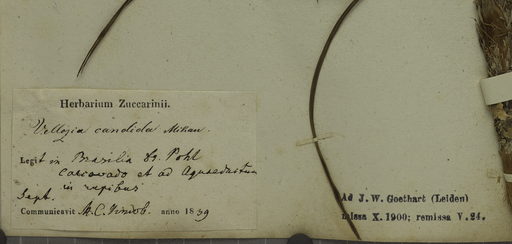 Herbarium Zuccarinii.
Vellozia candida Mikan.
Legit in Brasilia Dr. Pohl
Corcovado et ad Aquaeductum
in rupibus
Sept.
Communicavit M. C. Vindob. anno 1839
Ad J. W. Goethart (Leiden)
missa X. 1900; remissa V. 24.